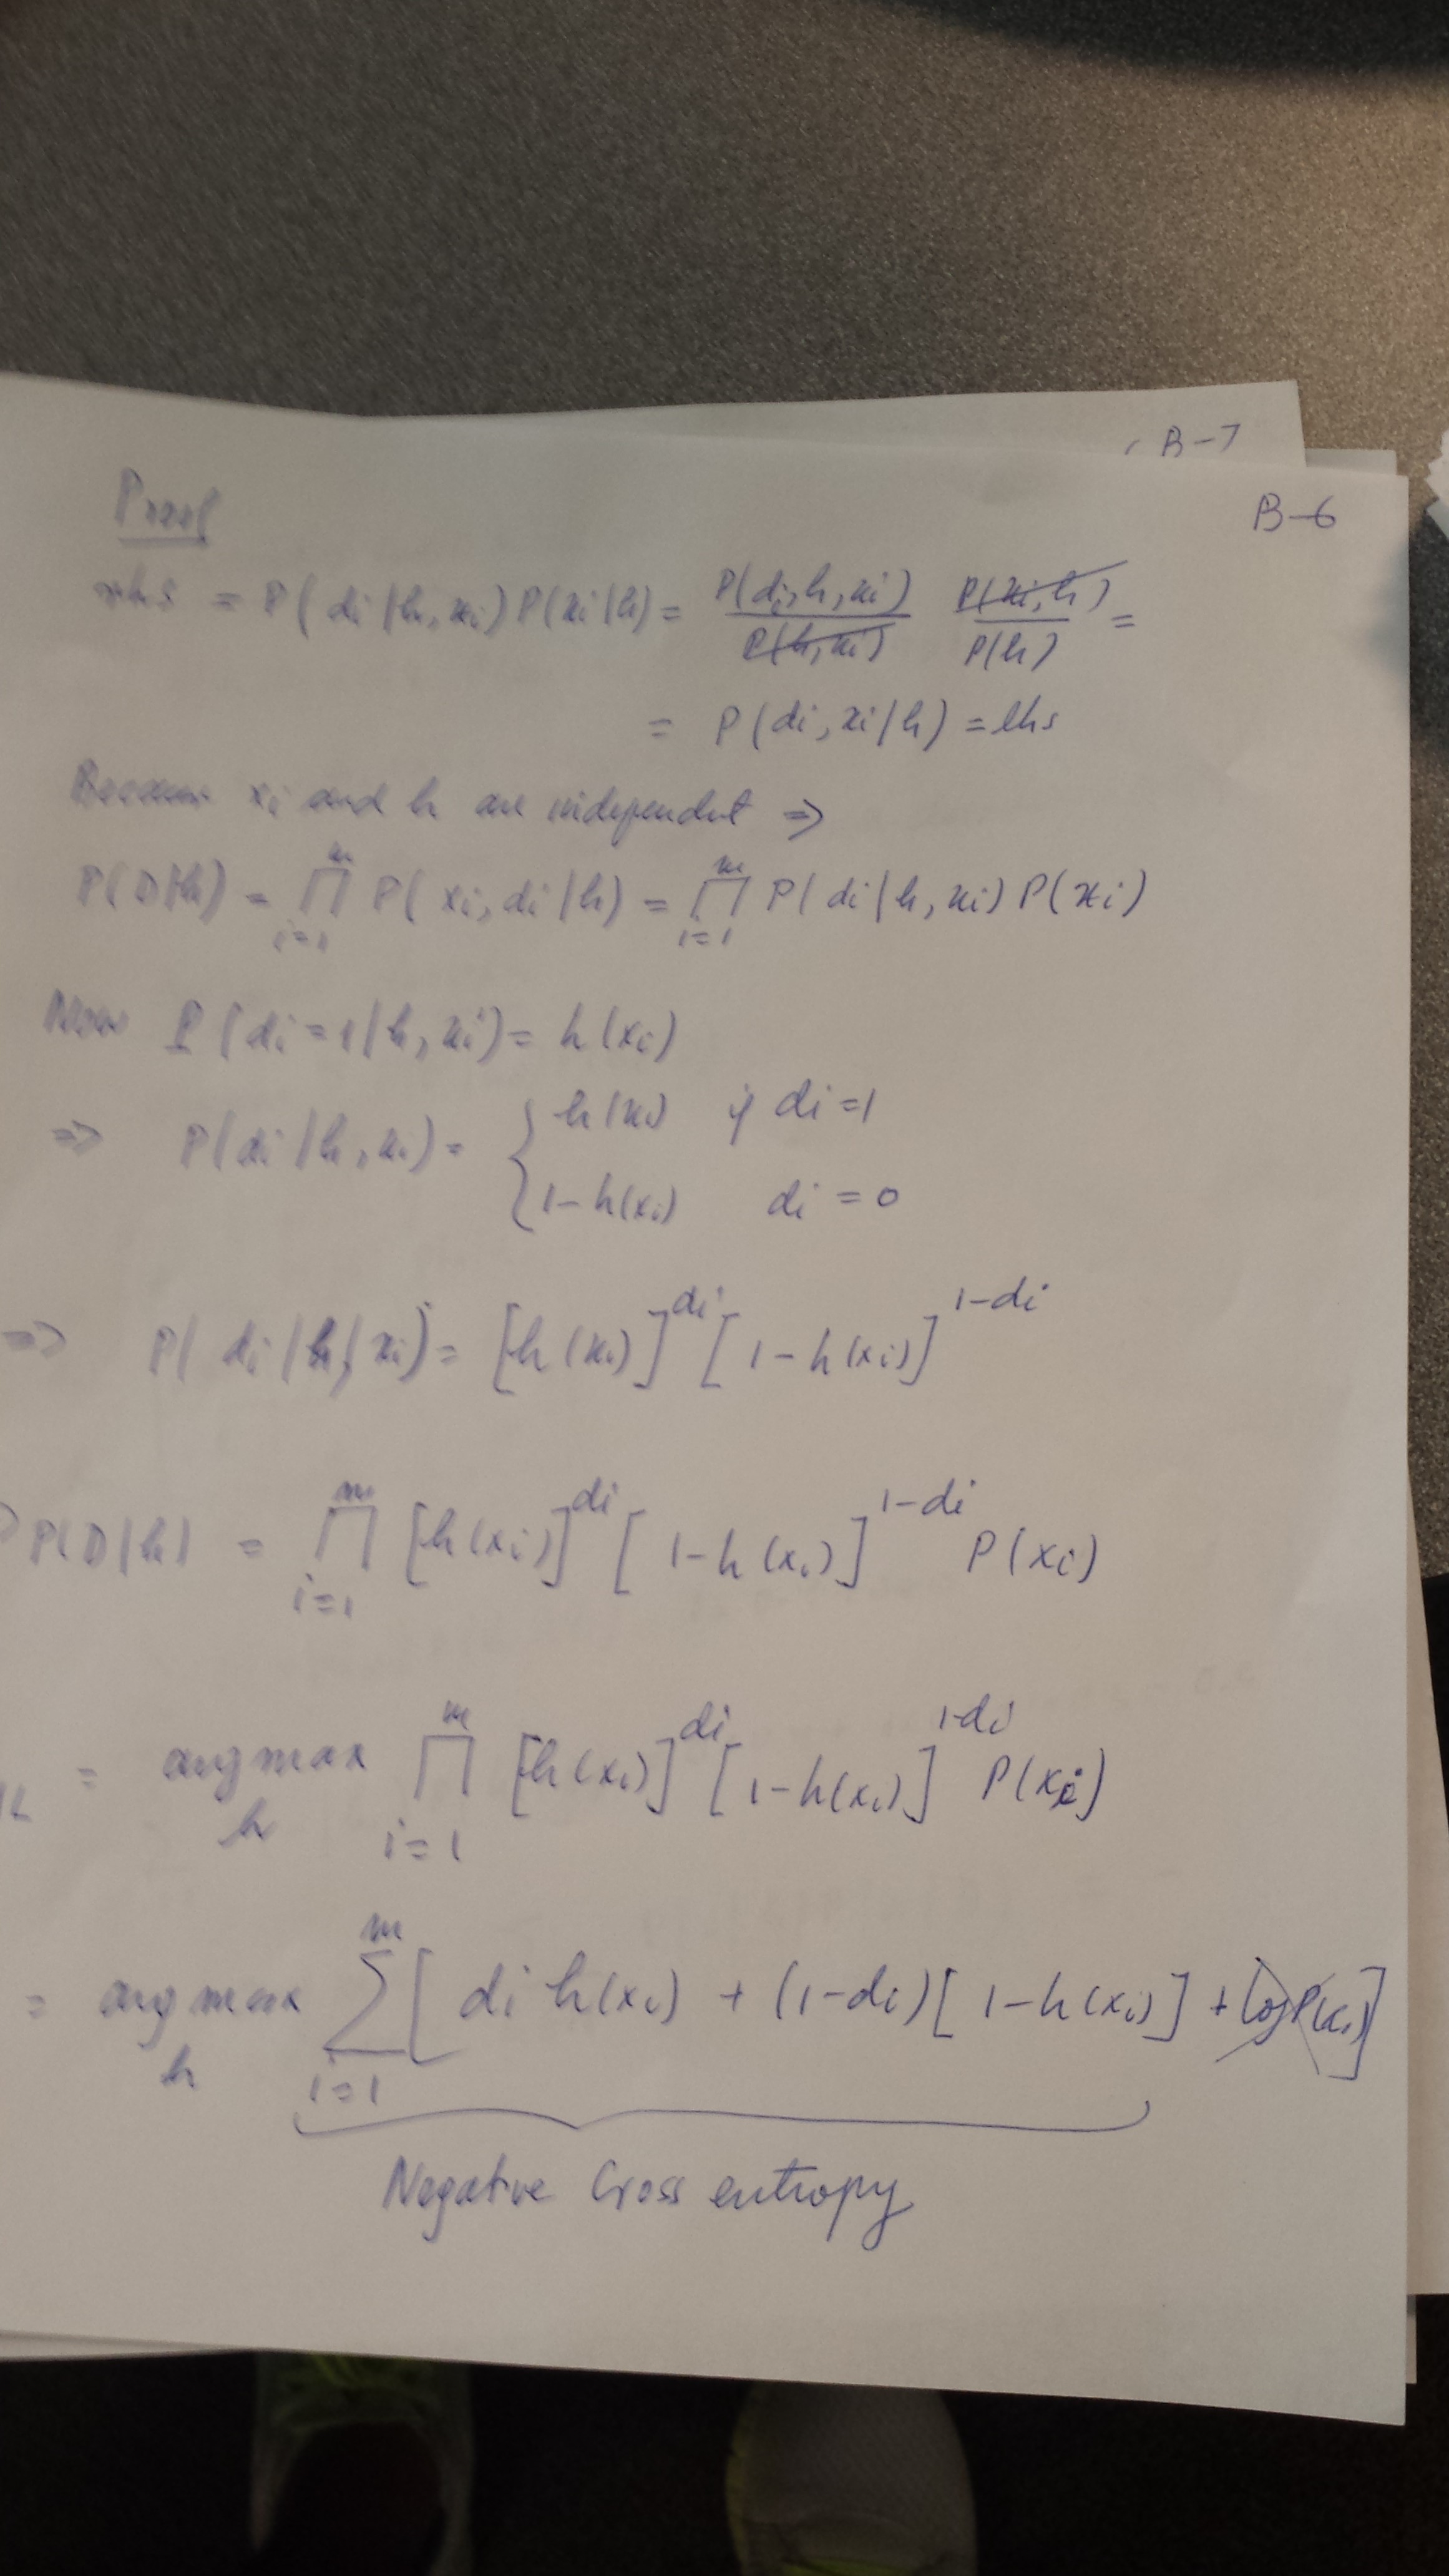 B-7
B-6
Proof
rhs = P(di|h,xi)P(xi|h) = P(di,h,xi)/P(h,xi) P(xi,h)/P(h) =
= P(di,xi|h) = lhs
Because xi and h are independent ⇒
P(D|h) = ∏_{i=1}^{m} P(xi,di|h) = ∏_{i=1}^{m} P(di|h,xi)P(xi)
Now P(di=1|h,xi) = h(xi)
⇒ P(di|h,xi) = { h(xi) if di=1
1-h(xi) di=0
⇒ P(di|h,xi) = [h(xi)]^{di} [1-h(xi)]^{1-di}
P(D|h) = ∏_{i=1}^{m} [h(xi)]^{di} [1-h(xi)]^{1-di} P(xi)
= argmax_h ∏_{i=1}^{m} [h(xi)]^{di} [1-h(xi)]^{1-di} P(xi)
= argmax_h ∑_{i=1}^{m} [di h(xi) + (1-di)[1-h(xi)] + log P(xi)]
Negative Cross entropy